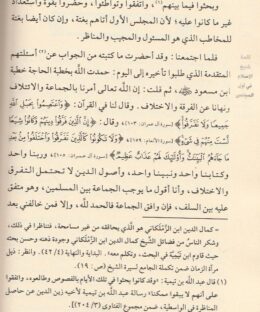 وبحثوا فيما بينهم (١)، واتفقوا وتواطئوا، وحضروا بقوة واستعداد
غير ما كانوا عليه؛ لأن المجلس الأول أتاهم بغتة، وإن كان أيضا بغتة
للمخاطب الذي هو المسئول والمجيب والمناظر.
فلما اجتمعنا: وقد أحضرت ما كتبته من الجواب عن أسئلتهم
المتقدمة الذي طلبوا تأخيره إلى اليوم: حمدت الله بخطبة الحاجة خطبة
ابن مسعود، ثم قلت: إن الله تعالى أمرنا بالجماعة والائتلاف
ونهانا عن الفرقة والاختلاف. وقال لنا في القرآن: ﴿وَاعْتَصِمُوا بِحَبْلِ اللَّهِ
جَمِيعًا وَلَا تَفَرَّقُوا﴾ [سورة آل عمران: ١٠٣] وقال: ﴿إِنَّ الَّذِينَ فَرَّقُوا دِينَهُمْ وَكَانُوا
شِيَعًا لَسْتَ مِنْهُمْ فِي شَيْءٍ﴾ [سورة الأنعام: ١٥٩] وقال: ﴿وَلَا تَكُونُوا كَالَّذِينَ تَفَرَّقُوا وَاخْتَلَفُوا مِنْ بَعْدِ
مَا جَاءَهُمُ الْبَيِّنَاتُ وَأُولَئِكَ لَهُمْ عَذَابٌ عَظِيمٌ﴾ [سورة آل عمران: ١٠٥] وربنا واحد
وكتابنا واحد ونبينا واحد، وأصول الدين لا تحتمل التفرق
والاختلاف، وأنا أقول ما يوجب الجماعة بين المسلمين، وهو متفق
عليه بين السلف، فإن وافق الجماعة فالحمد لله، وإلا فمن خالفني بعد
= كمال الدين ابن الزملكاني هو الذي يحاققه من غير مسامحة، فتناظرا في ذلك،
وشكر الناس من فضائل الشيخ كمال الدين ابن الزملكاني وجودة ذهنه وحسن بحثه
حيث قاوم ابن تيمية في البحث، وتكلم معه". البداية والنهاية
مرآة الزمان ضمن تكملة الجامع لسيرة الشيخ (ص: ١٩).
(١) قال عبد الله بن تيمية: "وقد كانوا بحثوا في تلك الأيام بالفصوص وطالعوه، واتفقوا
على أنهم لا يبقوا ممكنا" رسالة عبد الله بن تيمية لأخيه زين الدين عن حاصل
المناظرة في الواسطية، ضمن مجموع الفتاوى (٣/ ٢٠٤).